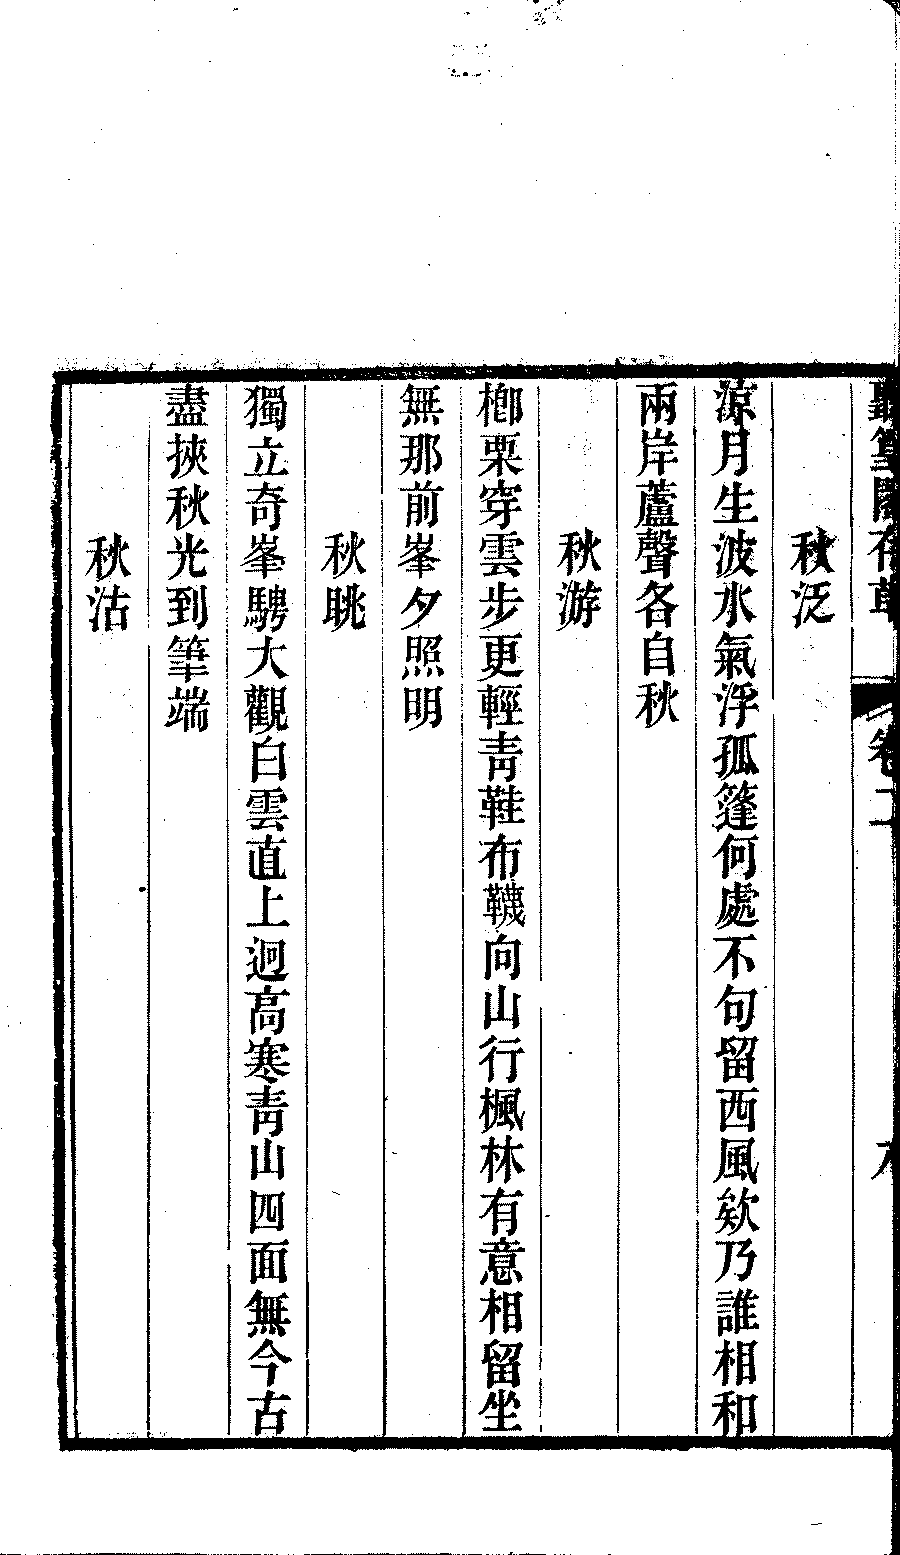 聽篁閣存草 卷二
秋泛
涼月生波水氣浮孤篷何處不句留西風欸乃誰相和
兩岸蘆聲各自秋
秋游
楖栗穿雲步更輕靑鞋布韈向山行楓林有意相留坐
無那前峯夕照明
秋眺
獨立奇峯騁大觀白雲直上迥高寒靑山四面無今古
盡挾秋光到筆端
秋沽